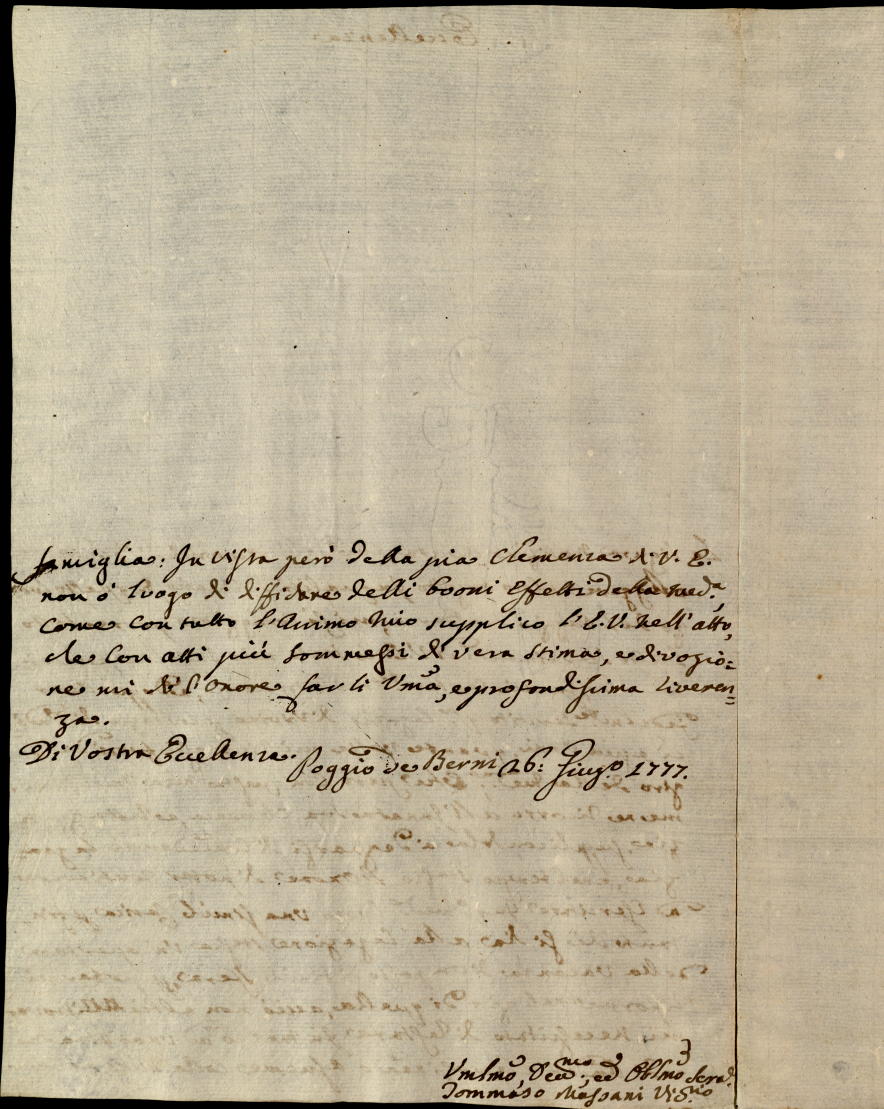 famiglia: In vista però della pia Clemenza di V. E.
non ò luogo di diffidare delli buoni effetti della med.ª
come con tutto l'Animo mio supplico l'E.V. nell'atto,
che con atti più sommessi di vera stima, e divozio=
ne mi dò l'onore farli Vm̃a, e profondissima riveren=
za.
Di Vostra Eccellenza.
Poggio de Berni 26: Giug.º 1777.
Vmlmõ, Dev.mo, ed Obl̃mo Serv.
Tommaso Massani